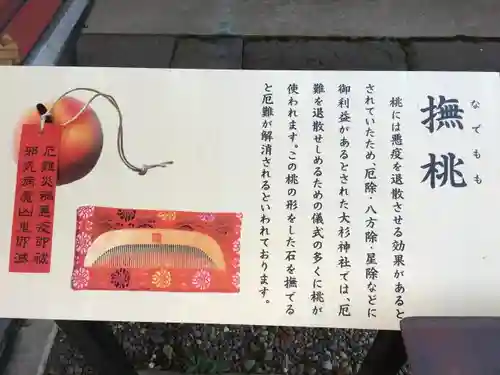 なでもも
撫桃
桃には悪疫を退散させる効果があると
されていたため、厄除・八方除・星除などに
御利益があるとされた大杉神社では、厄
難を退散せしめるための儀式の多くに桃が
使われます。この桃の形をした石を撫でる
と厄難が解消されるといわれております。
厄難災禍悪疫即祓
邪気病魔凶鬼即滅